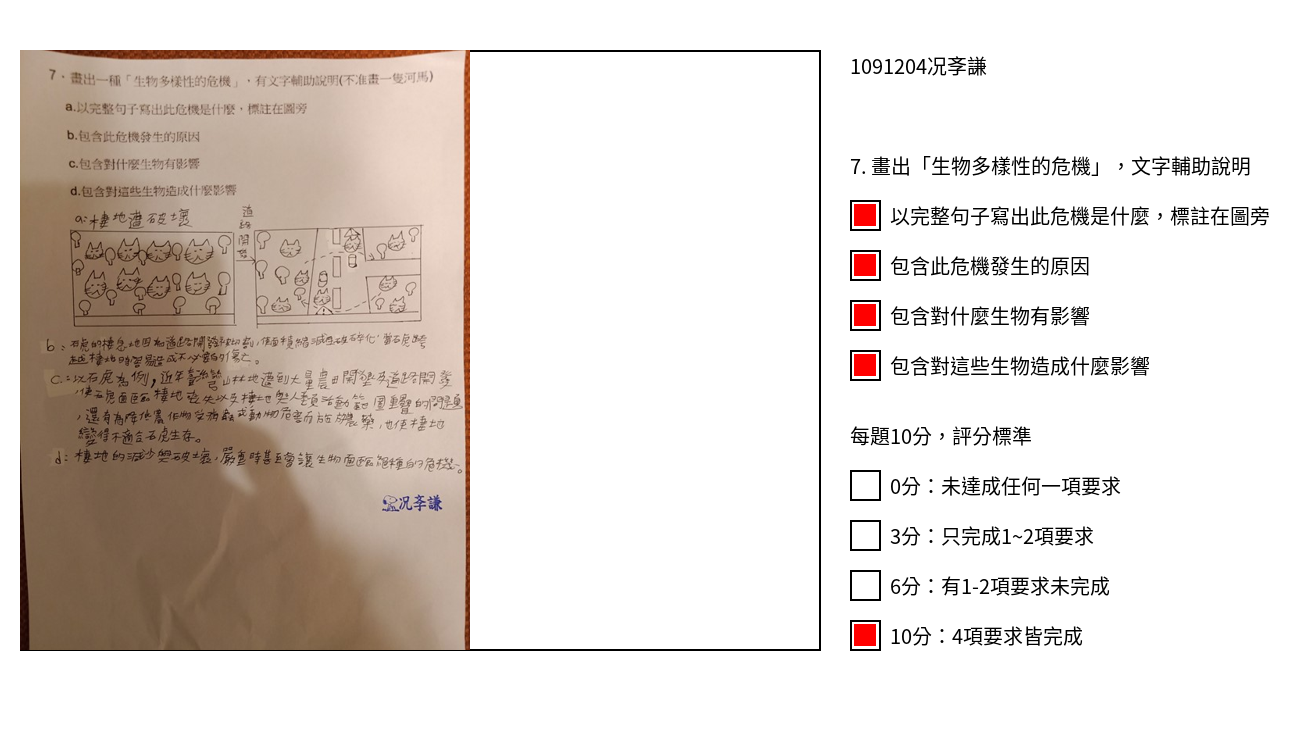 7、畫出一種「生物多樣性的危機」，有文字輔助說明(不准畫一隻河馬)
a.以完整句子寫出此危機是什麼，標註在圖旁
b.包含此危機發生的原因
c.包含對什麼生物有影響
d.包含對這些生物造成什麼影響
a:棲地遭破壞
道路開發
b:石虎的棲息地因為道路開發被切割,使面積縮減且破碎化,當石虎跨
越棲地時容易造成不必要的傷亡。
c.:以石虎為例,近年臺灣山林地遭到大量農田開墾及道路開發
,使石虎面臨棲地喪失以及棲地與人類活動範圍重疊的問題
,還有為降低農作物受病蟲或動物危害而施放農藥,也使棲地
變得不適合石虎生存。
d:棲地的減少與破壞,嚴重時甚至會讓生物面臨絕種的危機。
况李謙
1091204况李謙
7. 畫出「生物多樣性的危機」，文字輔助說明
以完整句子寫出此危機是什麼，標註在圖旁
包含此危機發生的原因
包含對什麼生物有影響
包含對這些生物造成什麼影響
每題10分，評分標準
0分：未達成任何一項要求
3分：只完成1~2項要求
6分：有1-2項要求未完成
10分：4項要求皆完成